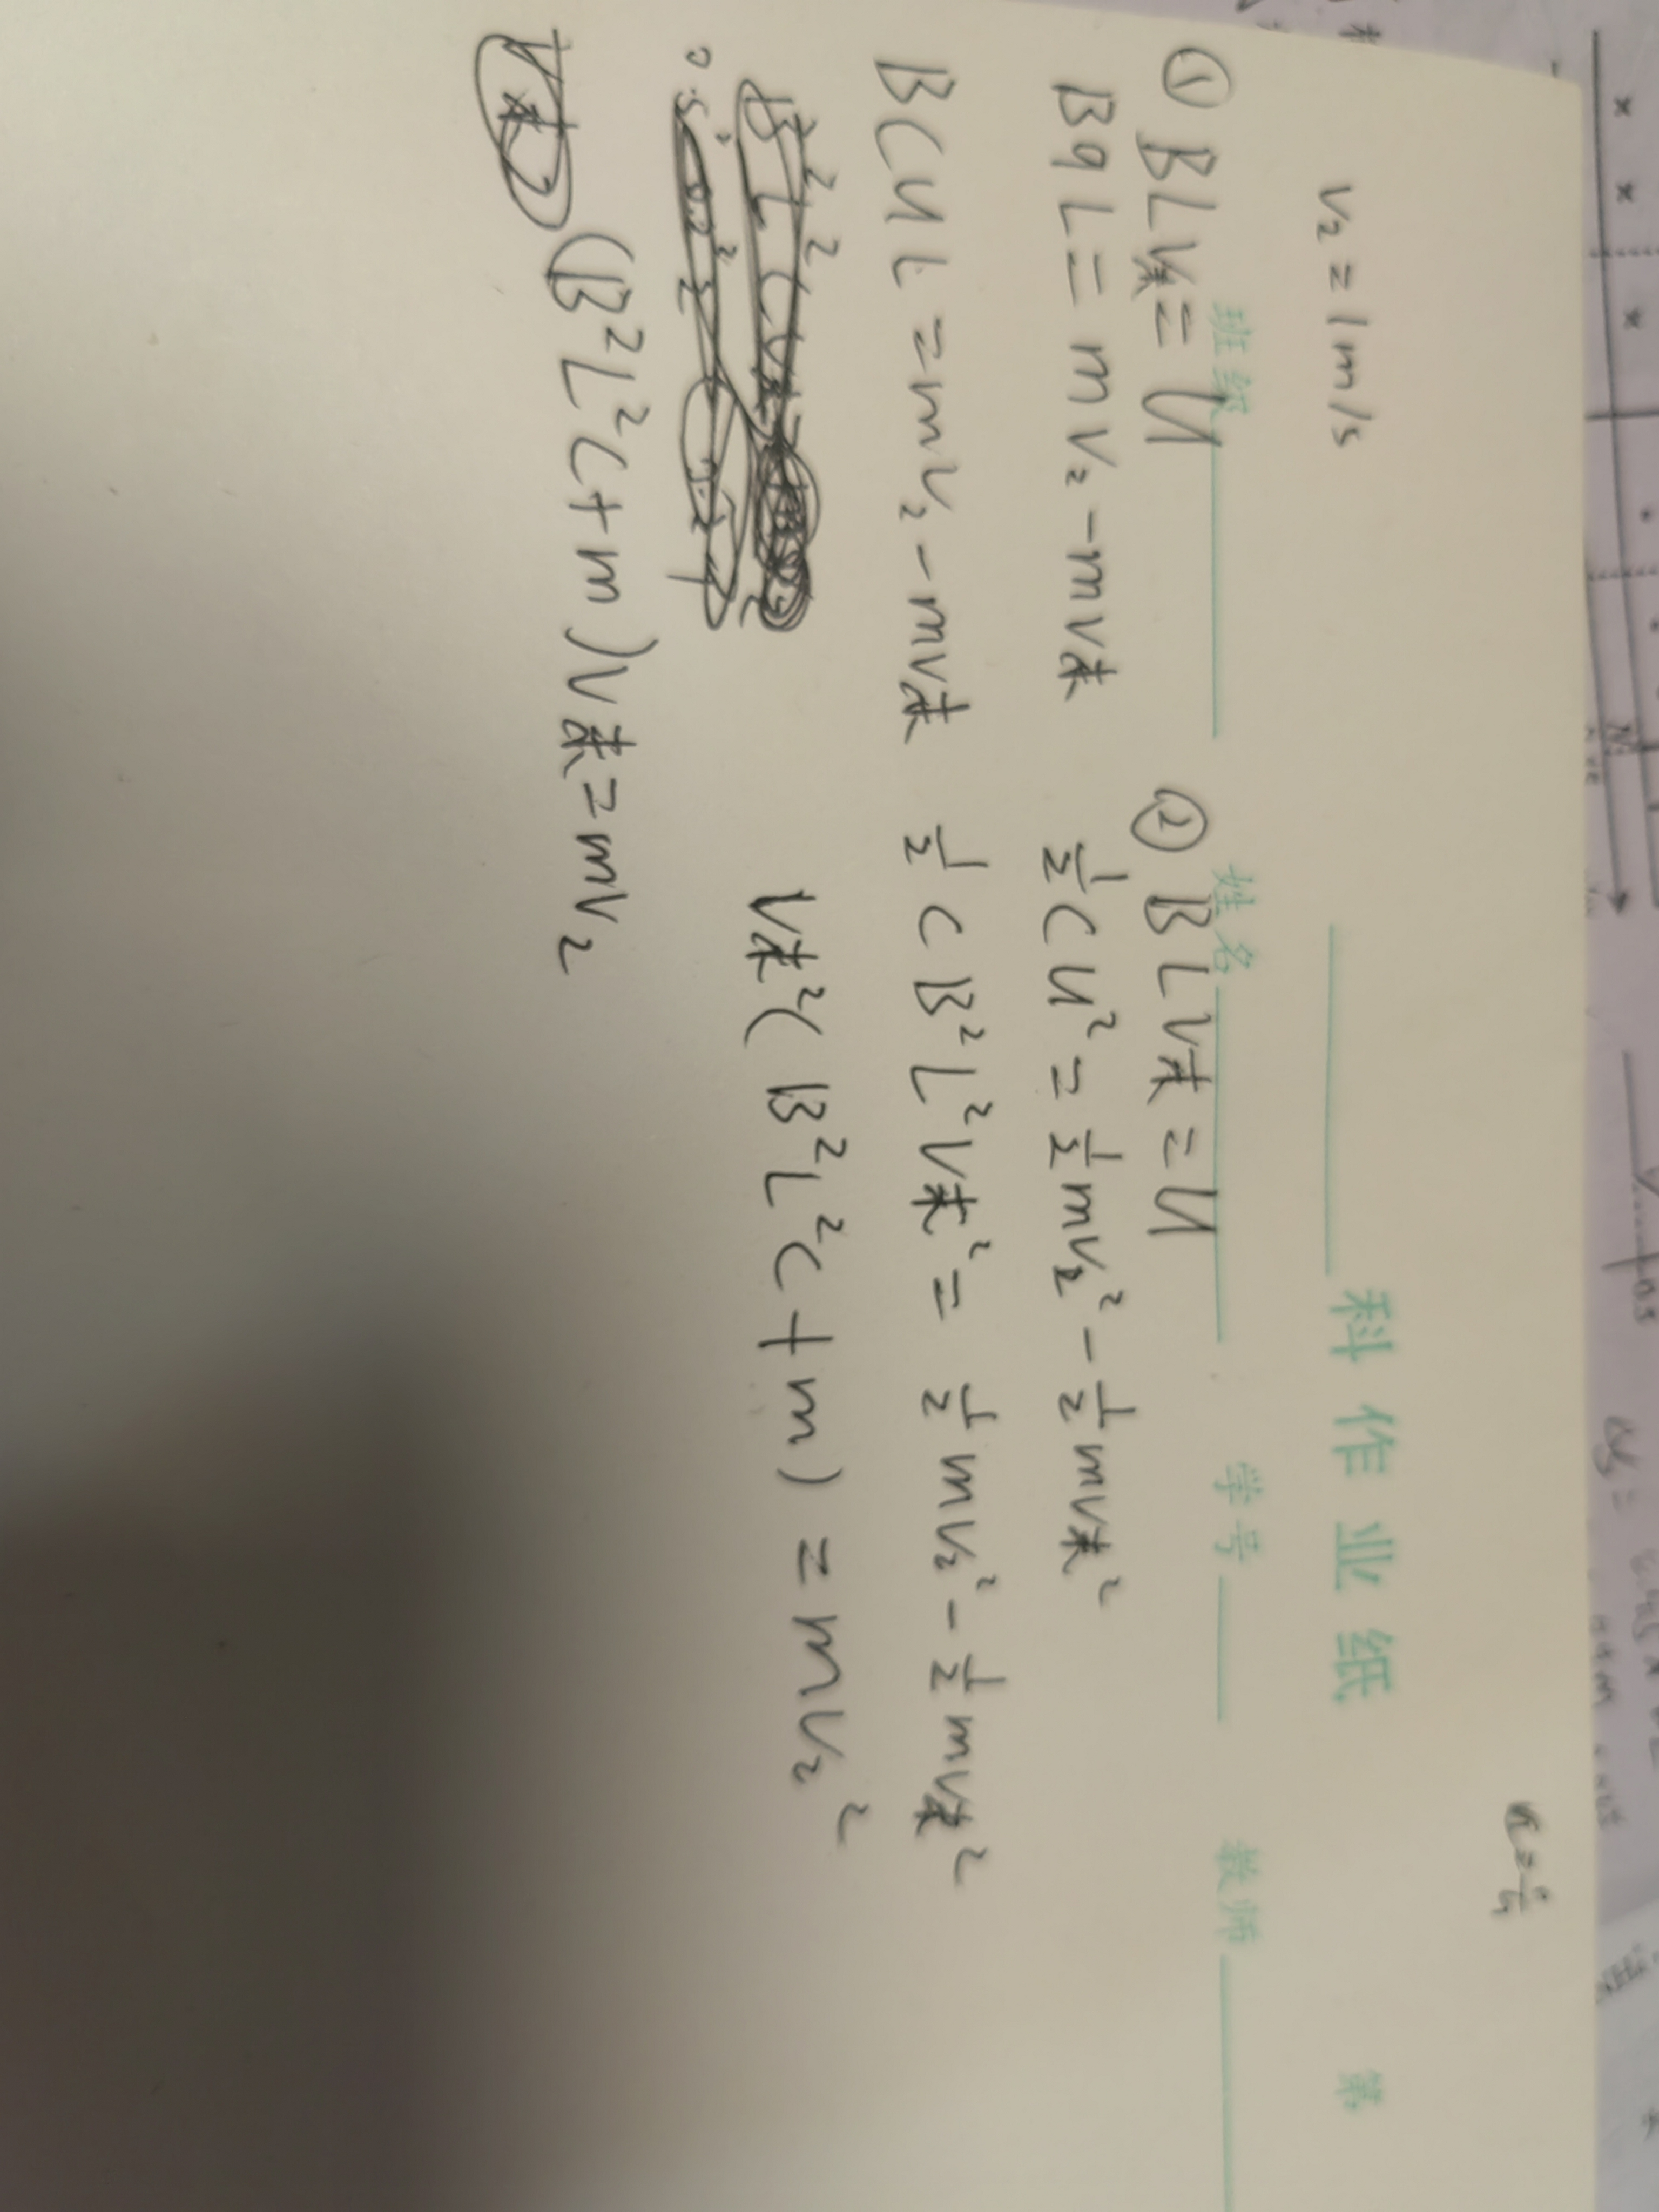 科作业纸
第
v₂=1m/s
班级 姓名 学号 教师
① BLv末=U
BqL=mv₂-mv末
BCUL=mv₂-mv末
(B²L²C+m)v末=mv₂
② BLv末=U
½CU²=½mv₂²-½mv末²
½CB²L²v末²=½mv₂²-½mv末²
v末²(B²L²C+m)=mv₂²